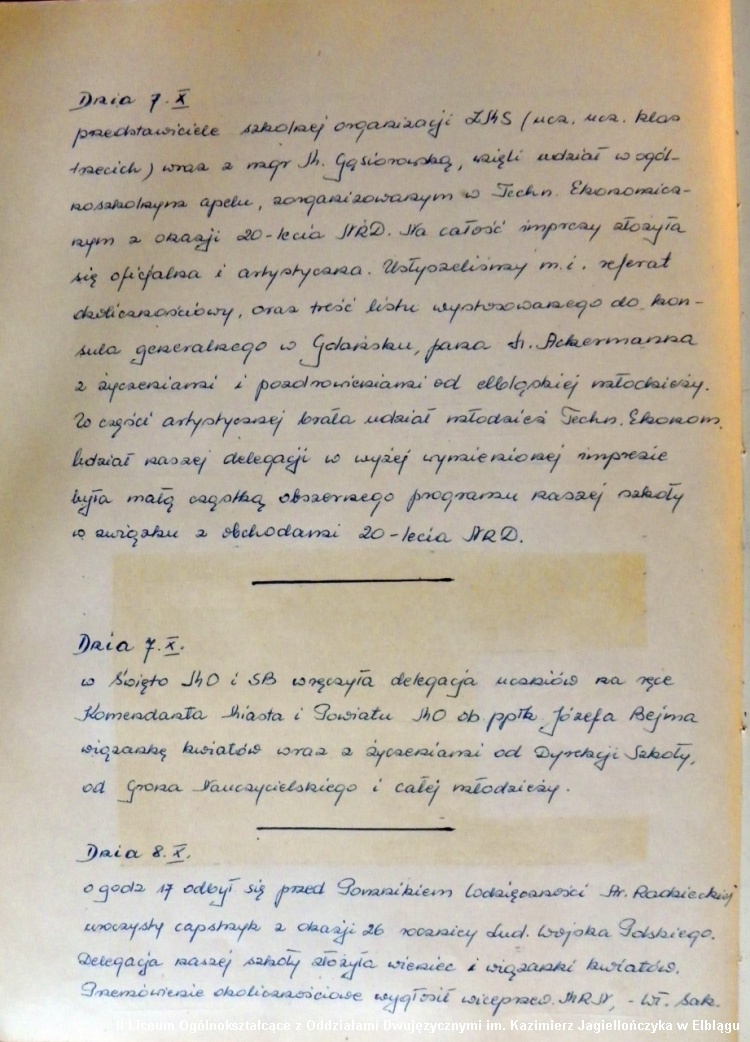 Dnia 7.X
przedstawiciele szkolnej organizacji ZMS (ucz. ucz. klas
trzecich) wraz z mgr M. Gąsiorowską, wzięli udział w ogól-
noszkolnym apelu, zorganizowanym w Techn. Ekonomicz-
nym z okazji 20-lecia NRD. Na całość imprezy złożyła
się oficjalna i artystyczna. Usłyszeliśmy m.i. referat
okolicznościowy, oraz treść listu wystosowanego do kon-
sula generalnego w Gdańsku, pana H. Ackermanna
z życzeniami i pozdrowieniami od elbląskiej młodzieży.
W części artystycznej brała udział młodzież Techn. Ekonom.
Udział naszej delegacji w wyżej wymienionej imprezie
była małą cząstką obszernego programu naszej szkoły
w związku z obchodami 20-lecia NRD.
Dnia 7.X.
w Święto MO i SB wręczyła delegacja uczniów na ręce
Komendanta Miasta i Powiatu MO ob. ppłk Józefa Bejma
wiązankę kwiatów wraz z życzeniami od Dyrekcji Szkoły,
od Grona Nauczycielskiego i całej młodzieży.
Dnia 8.X.
o godz 17 odbył się przed Pomnikiem Wdzięczności Ar. Radzieckiej
uroczysty capstrzyk z okazji 26 rocznicy Lud. Wojska Polskiego.
Delegacja naszej szkoły złożyła wieniec i wiązanki kwiatów.
Przemówienie okolicznościowe wygłosił wiceprzew. MRN, - Wł. Sak.
II Liceum Ogólnokształcące z Oddziałami Dwujęzycznymi im. Kazimierz Jagiellończyka w Elblągu